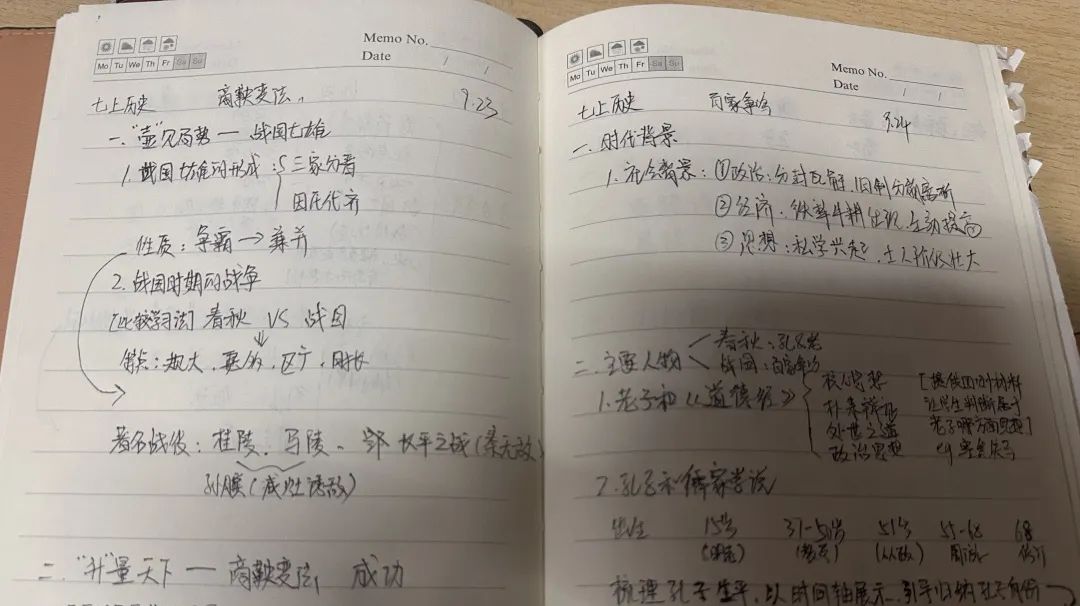 Memo No.
Mo Tu We Th Fr Sa Su
Date / /
七上历史 商鞅变法 9.23
一."壶"见局势 — 战国七雄
1. 战国七雄的形成: 三家分晋
田氏代齐
性质: 争霸 → 兼并
2. 战国时期的战争
[比较学习法] 春秋 VS 战国
特点: 规大, 区广, 时长
著名战役: 桂陵、马陵、 长平之战(秦无敌)
孙膑(减灶诱敌)
二."升"量天下 — 商鞅变法 成功
Memo No.
Mo Tu We Th Fr Sa Su
Date / /
七上历史 百家争鸣 9.24
一. 时代背景
1. 社会背景: ①政治: 分封瓦解, 旧制
② 经济: 铁犁牛耕出现, 提高
③ 思想: 私学兴起, 士人阶级壮大
二. 主要人物 春秋: 孔子老
战国: 百家争鸣
1. 老子和《道德经》 核心思想
朴素辩证
处世之道
政治思想
[提供四则材料
让学生判断属于
老子哪方面思想]
2. 孔子和儒家学说
出生 15岁 37-50岁 51岁 55-68 68
(从政)
梳理孔子生平, 以时间轴展示, 引导归纳孔子身份